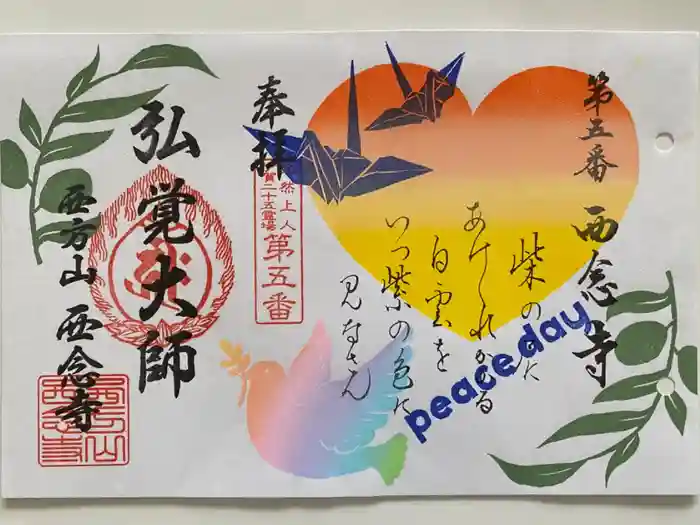 第五番 西念寺
柴の戸に
あけくれかゝる
白雲を
いつ紫の色に
見なさん
peace day
奉拝
然上人
賀二十五霊場
第五番
弘覚大師
西方山 西念寺